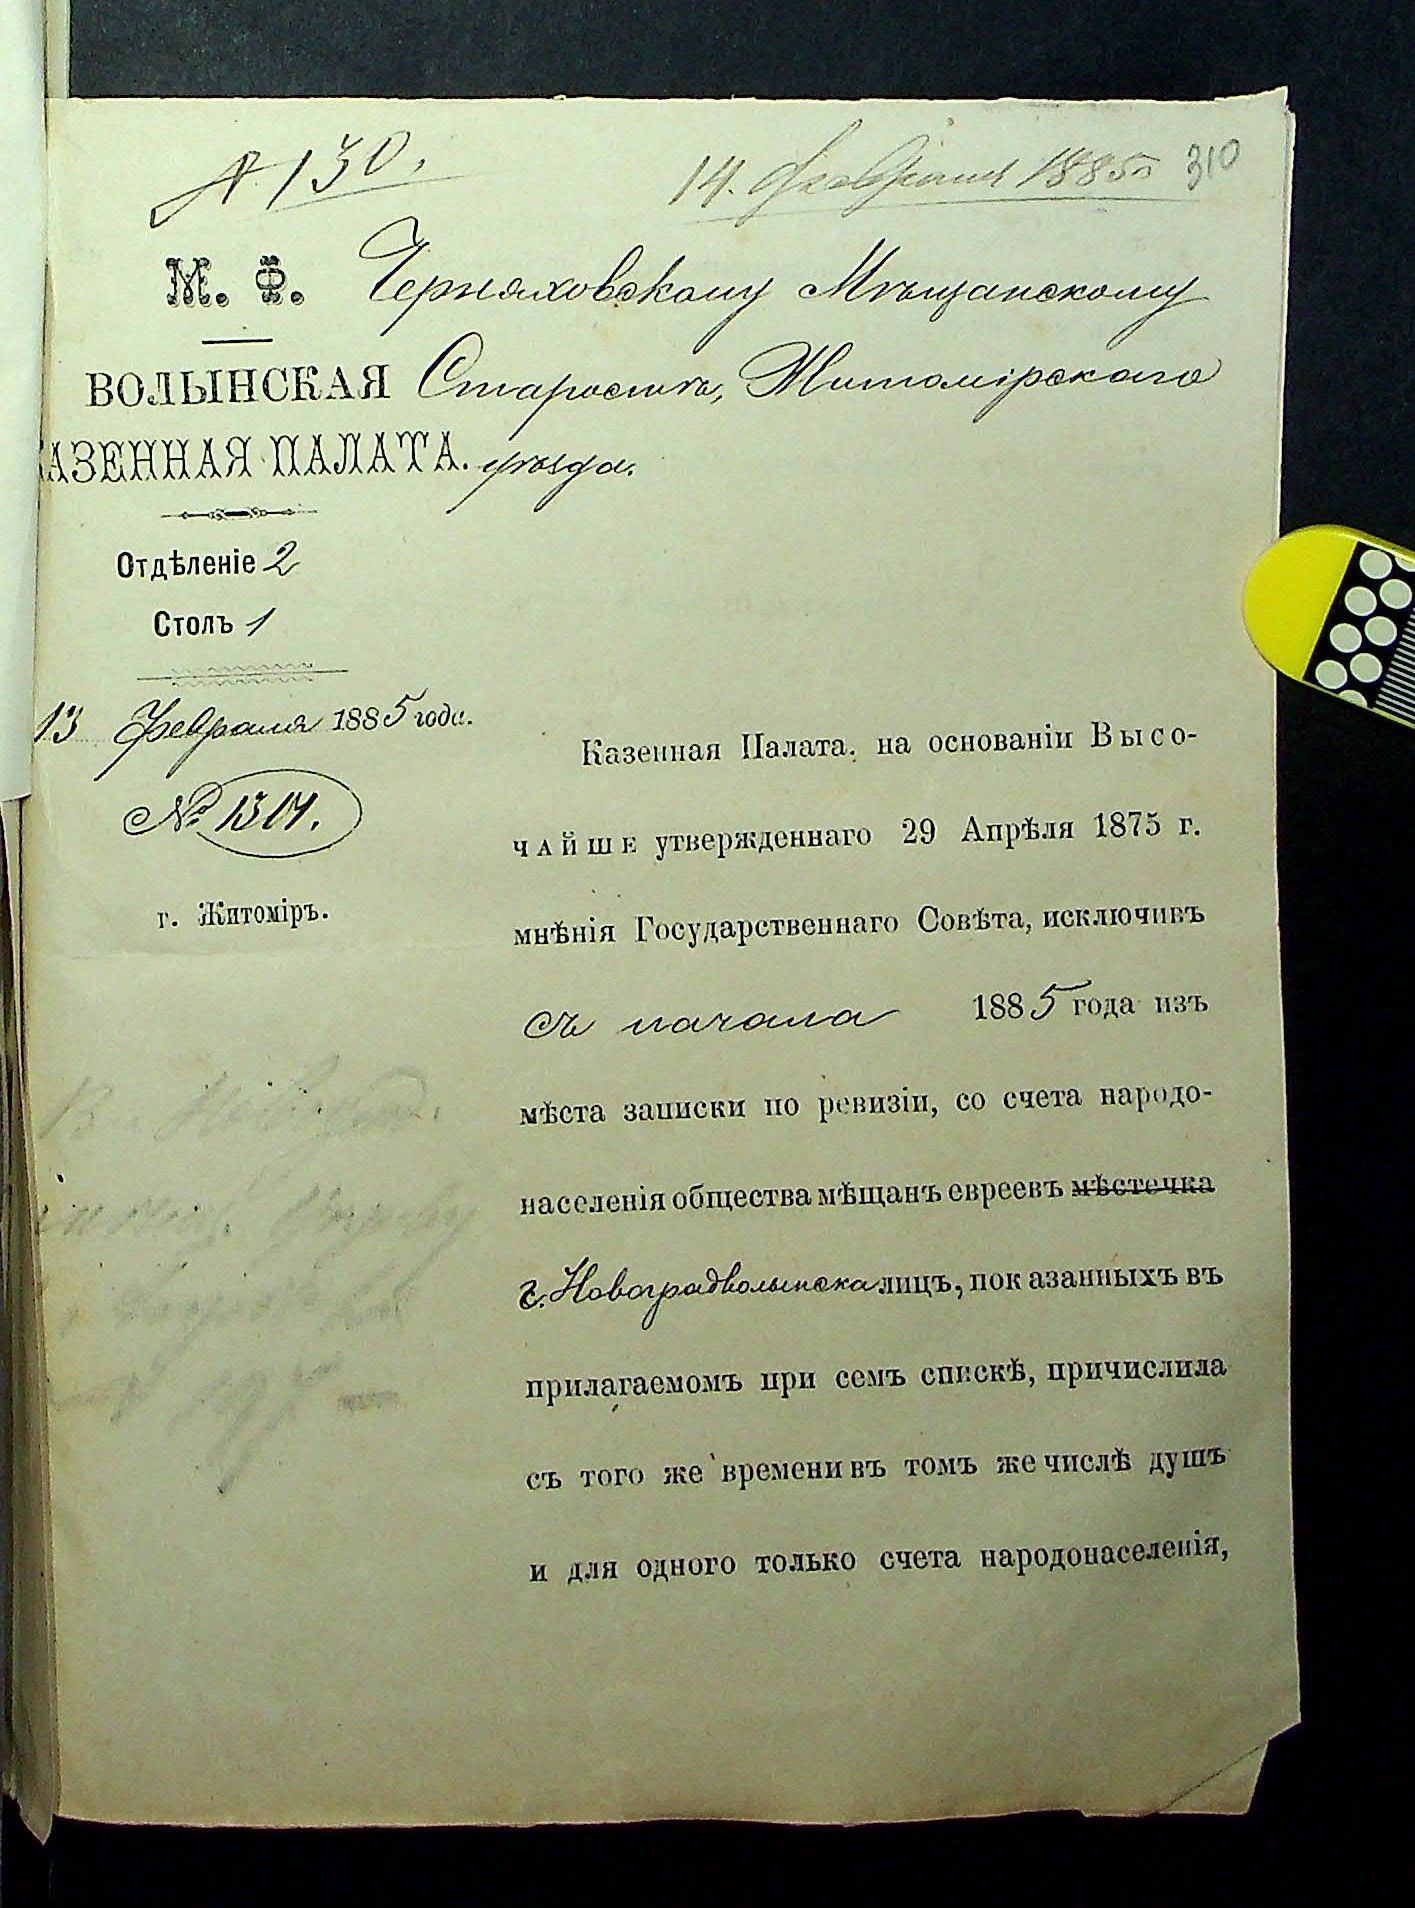 № 130.
14. Февраля 1885 г. 310
М. Ф.
ВОЛЫНСКАЯ
КАЗЕННАЯ ПАЛАТА.
Отдѣленіе 2
Столъ 1
13 Февраля 1885 года.
№ 1314.
г. Житоміръ.
Черняховскому Мѣщанскому
Старостѣ, Житомірскаго
уѣзда.
Казенная Палата, на основаніи Высо-
чайше утвержденнаго 29 Апрѣля 1875 г.
мнѣнія Государственнаго Совѣта, исключивъ
съ начала 1885 года изъ
мѣста записки по ревизіи, со счета народо-
населенія общества мѣщанъ евреевъ мѣстечка
г. Новоградволынска лицъ, показанныхъ въ
прилагаемомъ при семъ спискѣ, причислила
съ того же времени въ томъ же числѣ душъ
и для одного только счета народонаселенія,